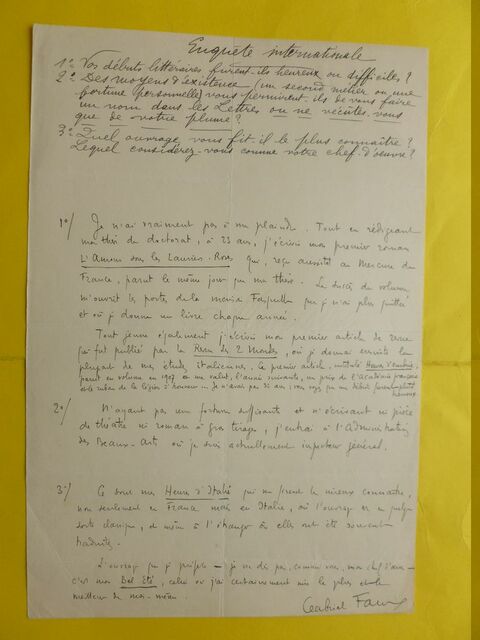 Enquête internationale
1º Vos débuts littéraires furent-ils heureux ou difficiles ?
2º Des moyens d'existence (un second métier ou une
fortune personnelle) vous permirent-ils de vous faire
un nom dans les Lettres ou ne vécûtes-vous
que de votre plume ?
3º Quel ouvrage vous fit-il le plus connaître ?
Lequel considérez-vous comme votre chef-d'oeuvre ?
1º/ Je n'ai vraiment pas à me plaindre. Tout en rédigeant
ma thèse de doctorat, à 23 ans, j'écrivis mon premier roman
L'Amour sous les Lauriers-Roses qui, reçu aussitôt au Mercure de
France, parut le même jour que ma thèse. Le succès du volume
m'ouvrit les portes de la maison Fasquelle que je n'ai plus quittée
et où je donne un livre chaque année.
Tout jeune également j'écrivis mon premier article de revue
qui fut publié par la Revue des 2 Mondes, où je donnai ensuite la
plupart de mes études italiennes, le premier article, intitulé Heures d'Ombrie,
parut en volume en 1907 et me valut, l'année suivante, un prix de l'Académie française
et la même de la légion d'honneur. Je n'avais pas 30 ans, vous voyez que mes débuts furent plutôt
heureux.
2º/ N'ayant pas une fortune suffisante et n'écrivant ni pièces
de théâtre ni romans à gros tirages, j'entrai à l'Administration
des Beaux-Arts où je suis actuellement inspecteur général.
3º/ Ce sont mes Heures d'Italie qui me firent le mieux connaître,
non seulement en France mais en Italie, où l'ouvrage est en quelque
sorte classique, et même à l'étranger où elles ont été souvent
traduites.
L'ouvrage que je préfère – je ne dis pas, comme vous, mon chef-d'oeuvre –
c'est mon Bel Eté, celui où j'ai certainement mis le plus et le
meilleur de moi-même.
Gabriel Faure